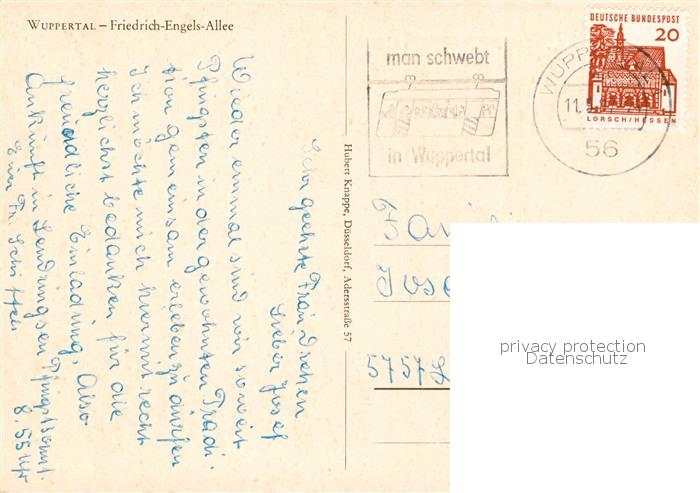 WUPPERTAL – Friedrich-Engels-Allee
Sehr geehrte Frau Drehen
Lieber Josef
Wieder einmal sind wir soweit
Pfingsten in der gewohnten Tradi-
tion gemeinsam erleben zu dürfen
Ich möchte mich hiermit recht
herzlichst bedanken für die
freundliche Einladung, Also
Ankunft in Lendringsen Pfingstsonnt.
8.55 Uhr
Euer Fr.
Hubert Knappe, Düsseldorf, Adersstraße 57
man schwebt
in Wuppertal
WUPP
11.5
56
DEUTSCHE BUNDESPOST
20
LORSCH/HESSEN
Fami
Jose
5757 L
privacy protection
Datenschutz